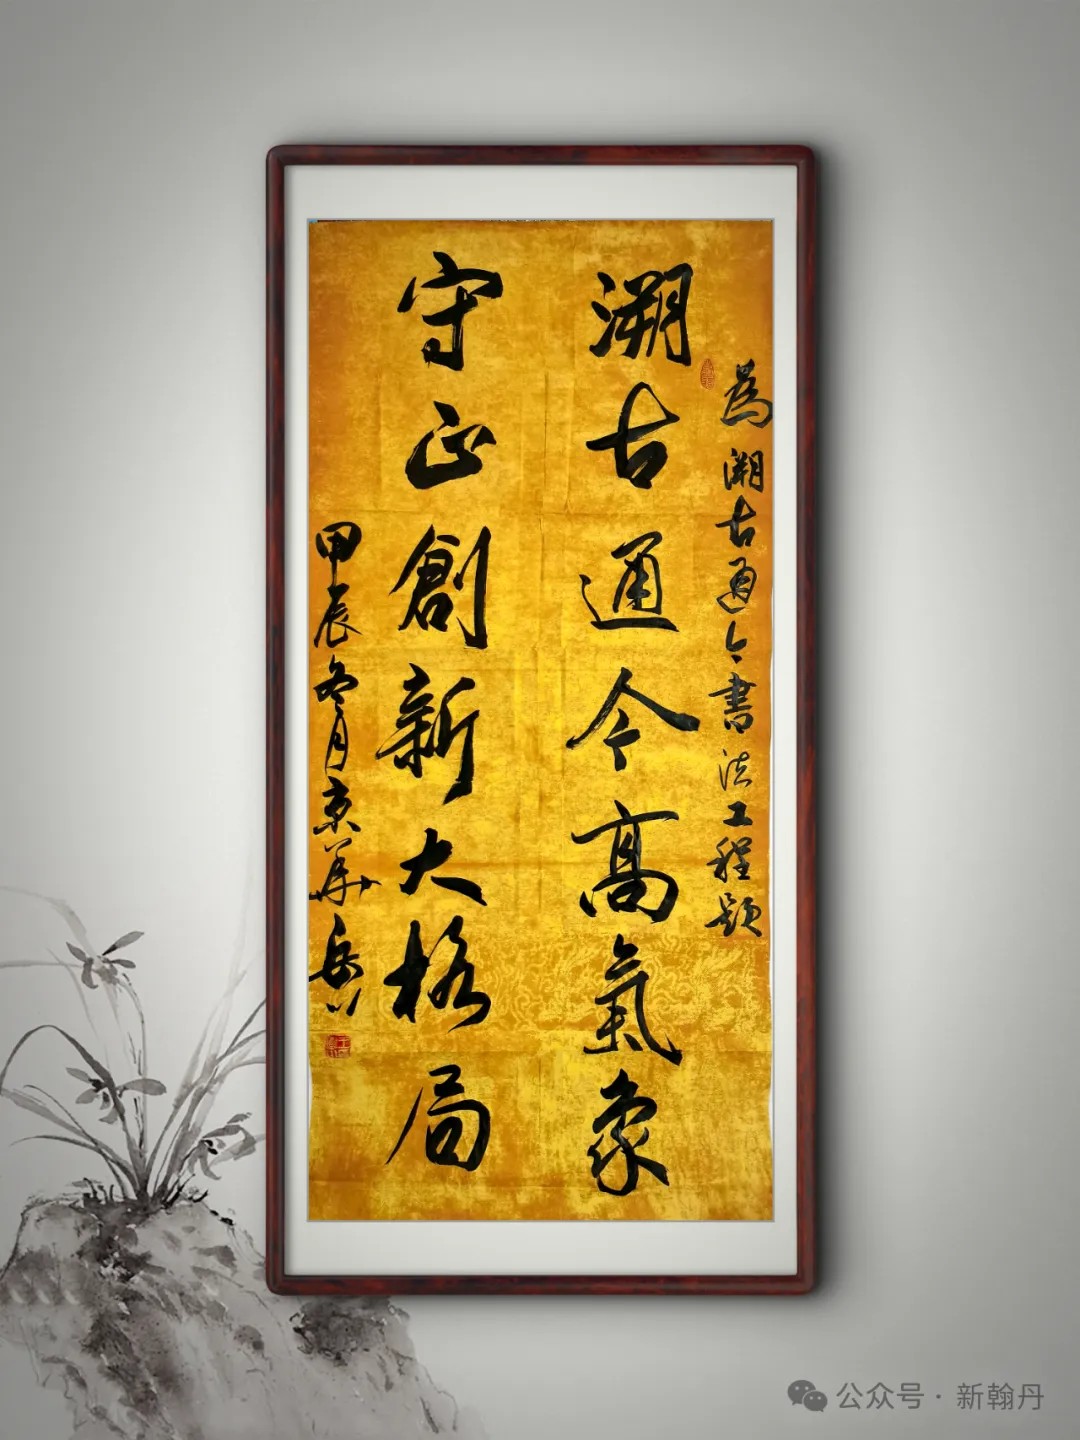 為溯古通今書法工程題
溯古通今高氣象
守正創新大格局
甲辰冬月京華岳川
公众号·新翰丹